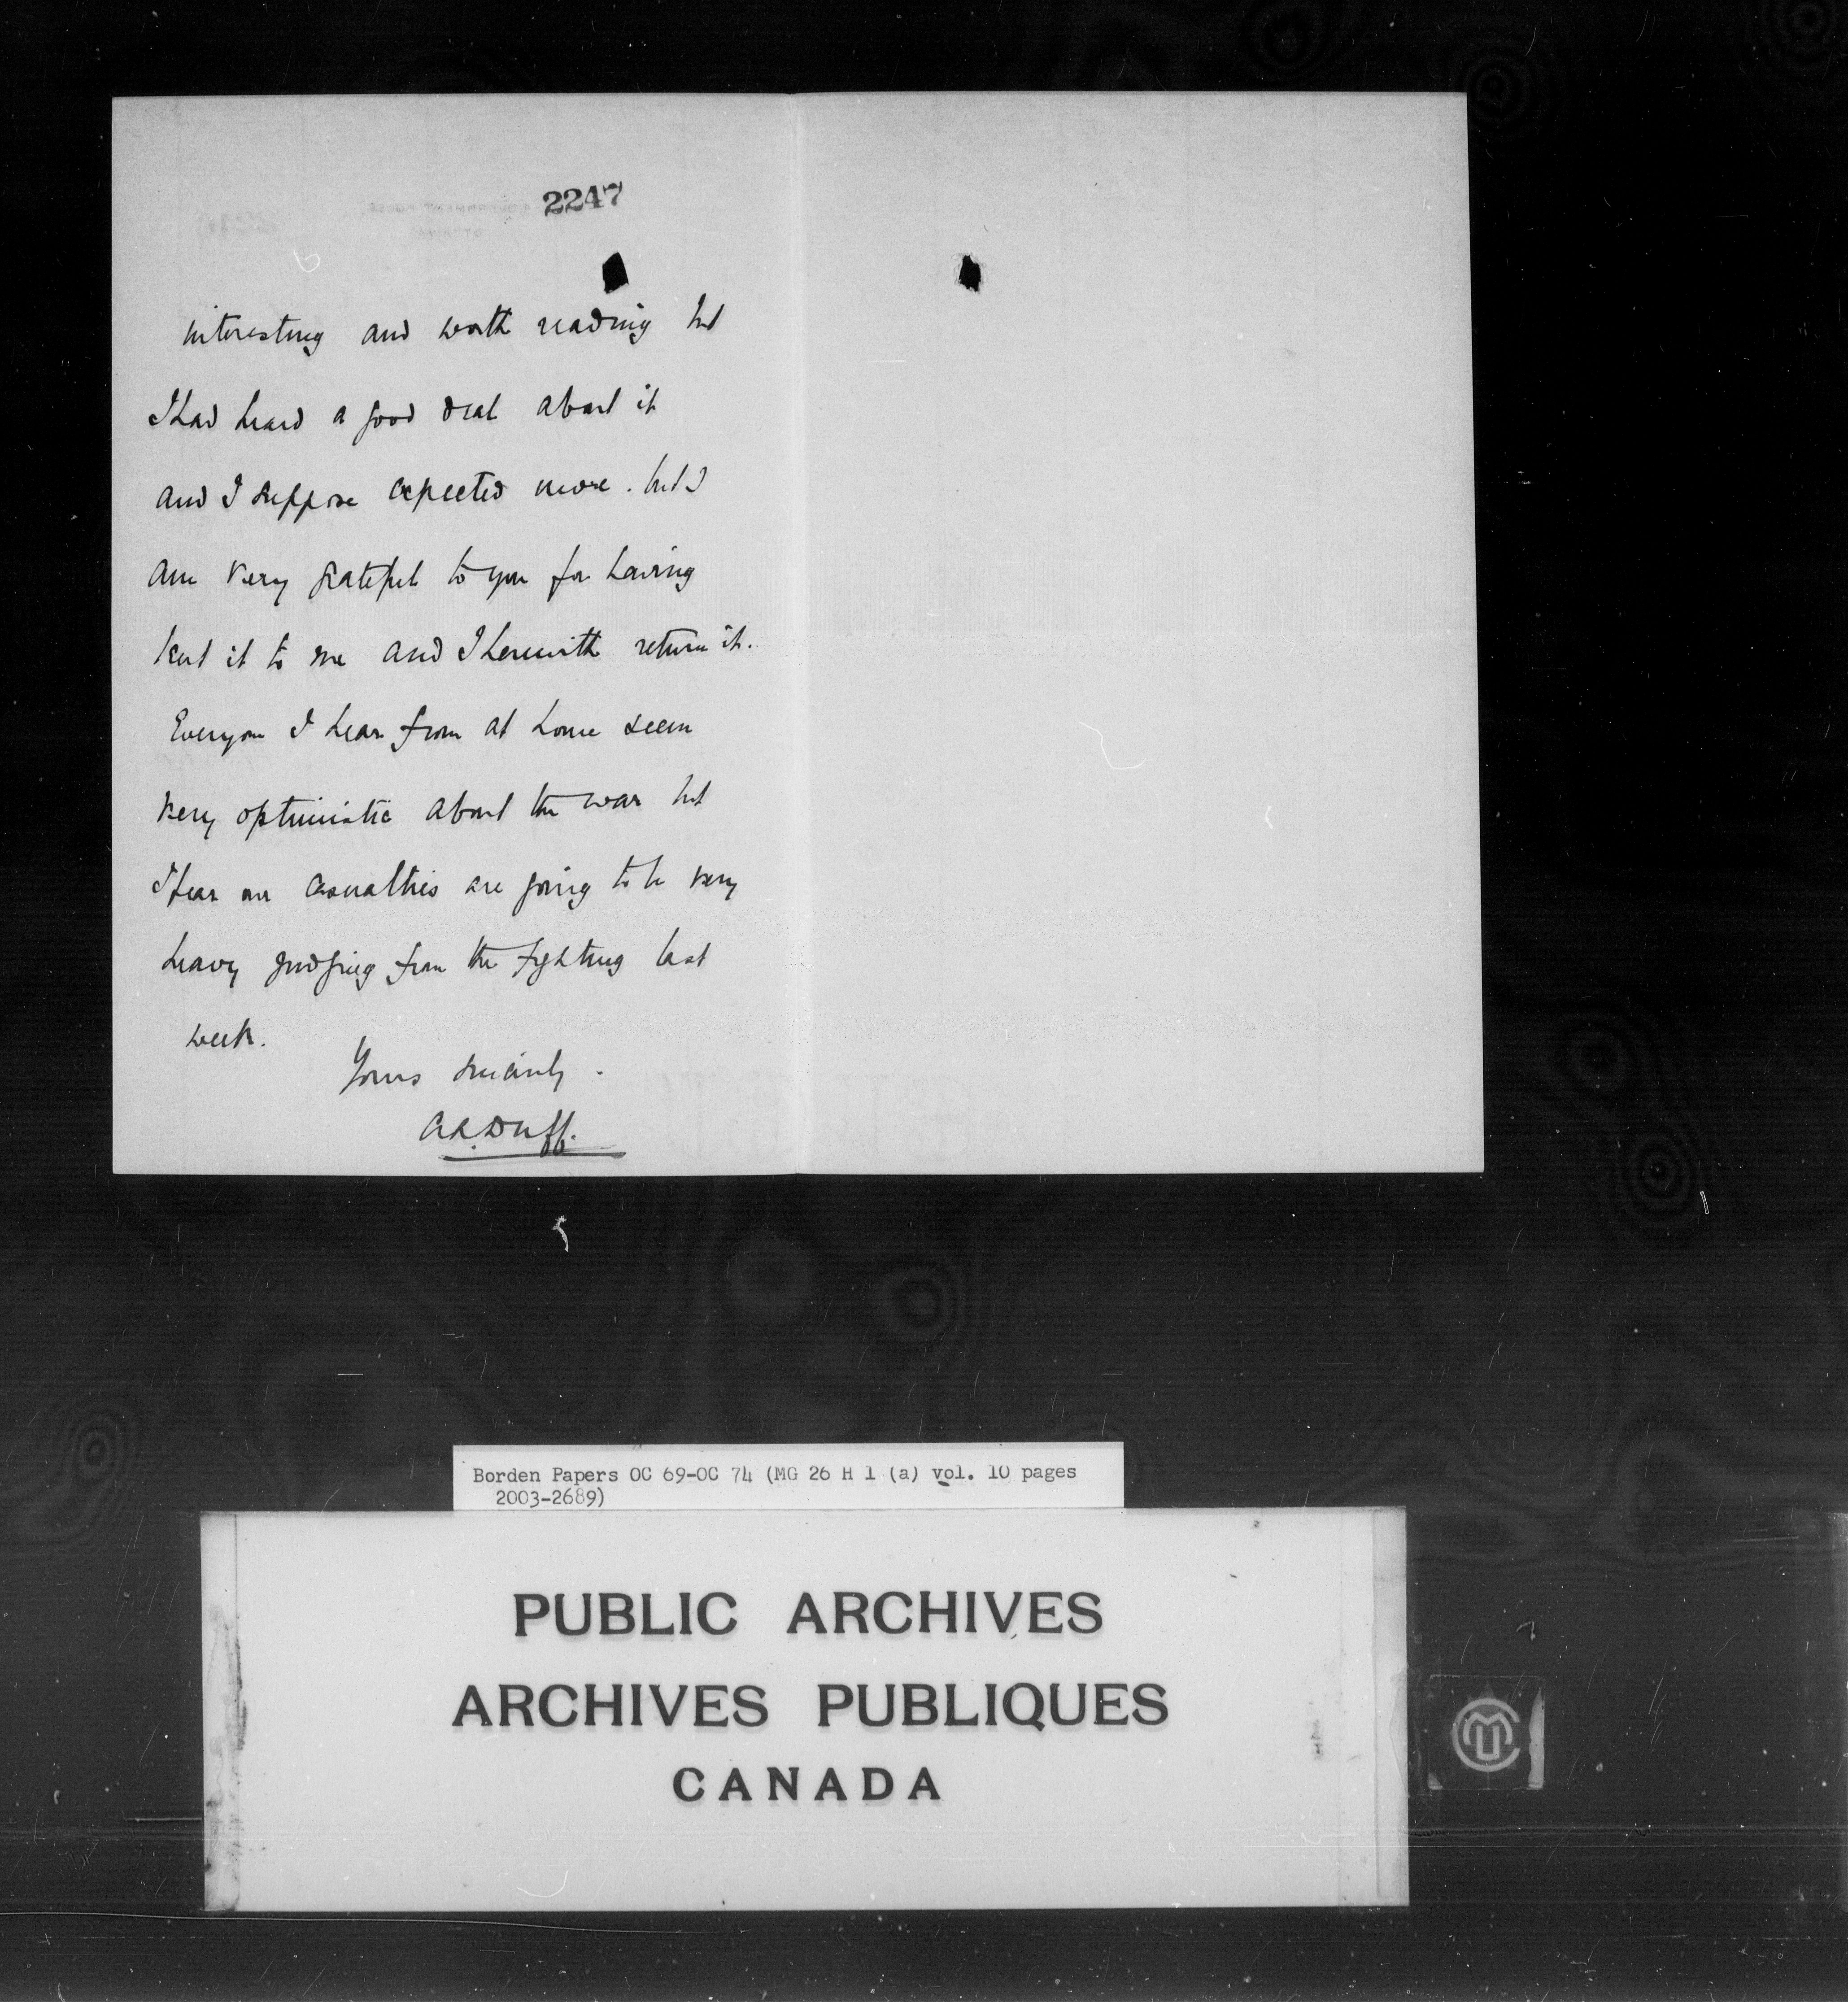 2247
interesting and worth reading but
I had heard a good deal about it
and I suppose expected more. but I
am very grateful to you for having
lent it to me and I herewith return it.
Everyone I hear from at home seem
very optimistic about the war but
I fear our casualties are going to be very
heavy judging from the fighting last
week.
Yours sincerely.
Duff.
Borden Papers OC 69-OC 74 (MG 26 H 1 (a) vol. 10 pages
2003-2689)
PUBLIC ARCHIVES
ARCHIVES PUBLIQUES
CANADA